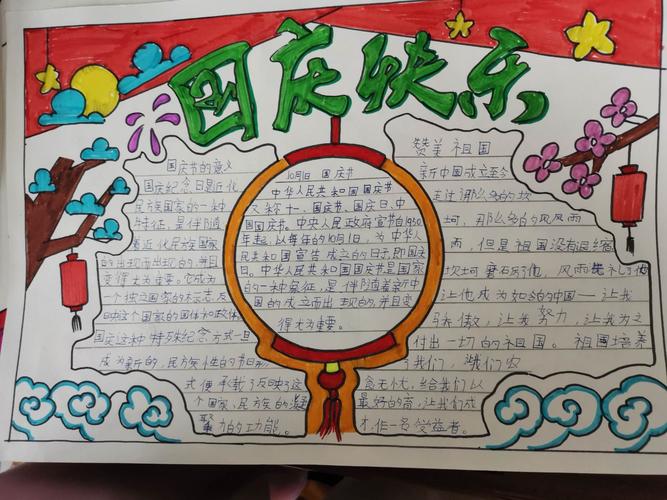 国庆快乐
国庆节的意义
国庆纪念日是近代
民族国家的一种
特征,是伴随
着近代民族国家
的出现而出现的,并且
变得尤为重要。它成为
一个独立国家的标志,反
映这个国家的国体和政体
国庆这种特殊纪念方式一旦
成为新的,民族性的节日形
式便承载了反映这
个国家、民族的凝
聚力的功能。
10月1日 国庆节
中华人民共和国国庆节
又称十一、国庆节、国庆日、中
国国庆节。中央人民政府宣布自1950
年起,以每年的10月1日,为中华人
民共和国宣告成立的日子,即国庆
日。中华人民共和国国庆节是国家
的一种象征,是伴随着新中
国的成立而出现的,并且变
得尤为重要。
赞美祖国
新中国成立至今
走过那么多的坎
坷,那么多的风风雨
雨,但是祖国没有退缩
坎坷磨石了他,风雨洗礼了他
让他成为如今的中国——让我
骄傲,让我努力,让我为之
付出一切的祖国。祖国培养
了我们,
无小尢,给我们以
最好的,让我们成
才,作一名受益者。